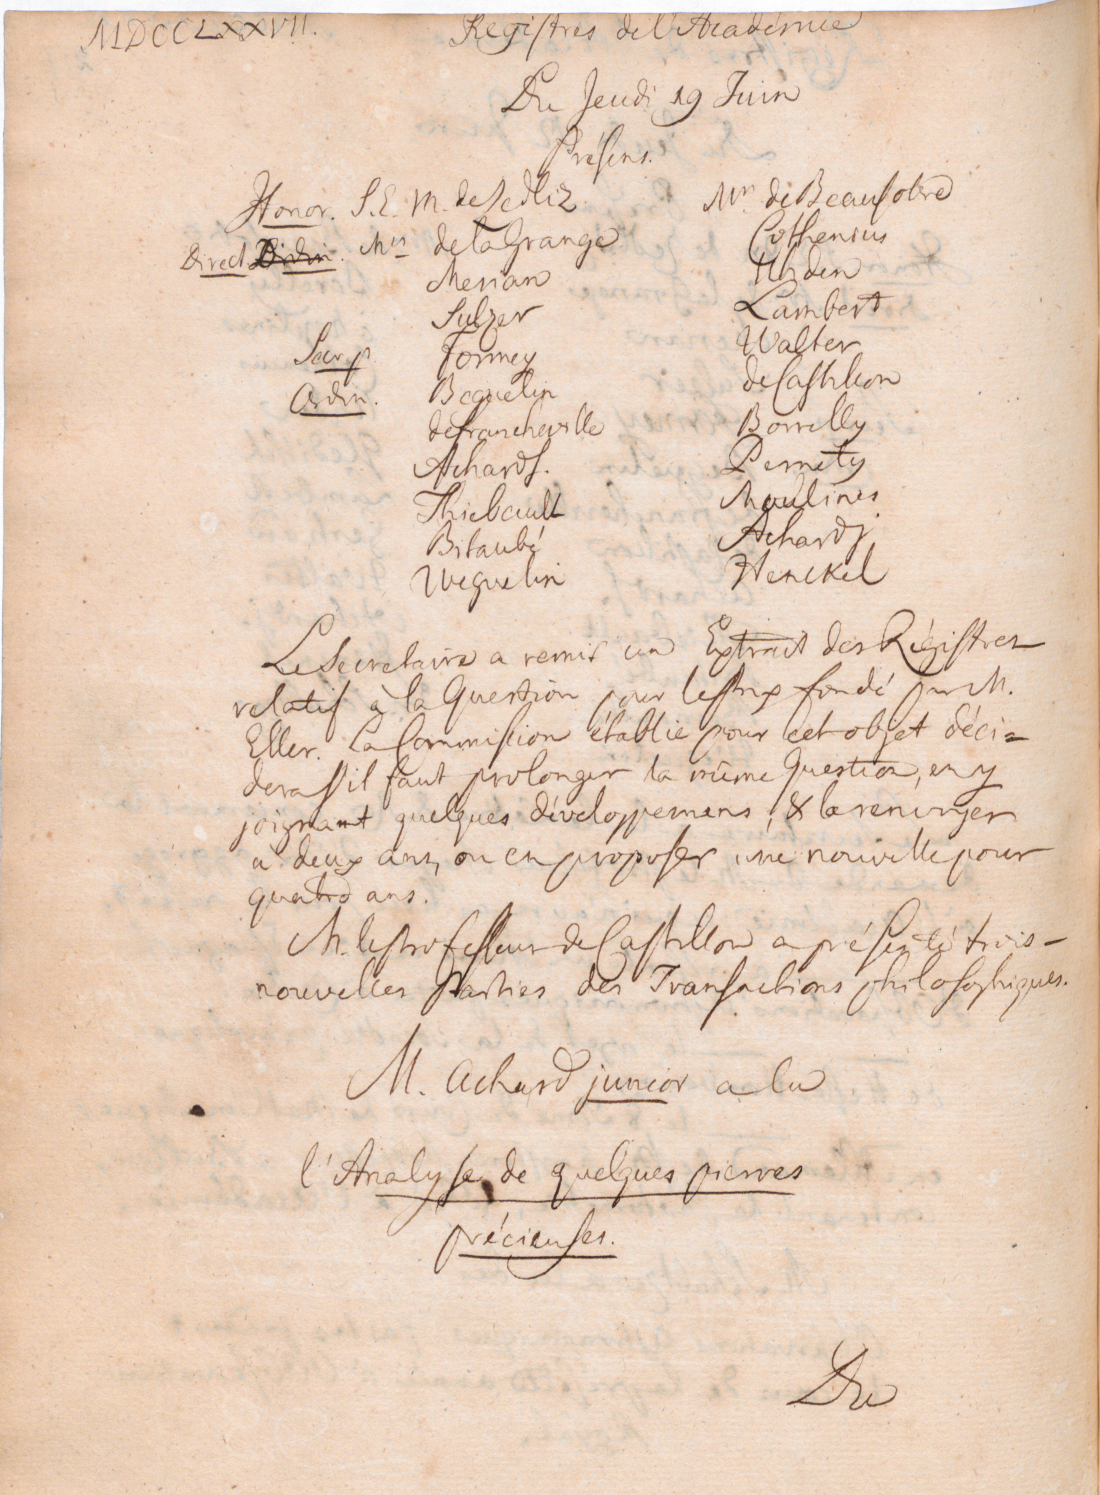 MDCCLXXVII.
Registres de l'Academie
Du Jeudi 19 Juin
Présens.
Honor. S.E. M. de Sedliz
Direct. Mrs de la Grange
Merian
Sulzer
Secr. p. Formey
Ordin. Beguelin
de Francheville
Achard s.
Thiebault
Bitaubé
Weguelin
Mrs de Beausobre
Cothenius
Uhden
Lambert
Walter
de Castillon
Borrelly
Pernety
Moulines
Achard j.
Henckel
Le Secretaire a remis un Extrait des Régistres
relatif à la Question pour le prix fondé par M.
Eller. La Commission établie pour cet objet déci=
dera s'il faut prolonger la même Question, en y
joignant quelques développemens, & la renvoyer
à deux ans, ou en proposer une nouvelle pour
quatre ans.
M. le Professeur de Castillon a présenté trois
nouvelles Parties des Transactions philosophiques.
M. Achard junior a lu
l'Analyse de quelques pierres
précieuses.
Du